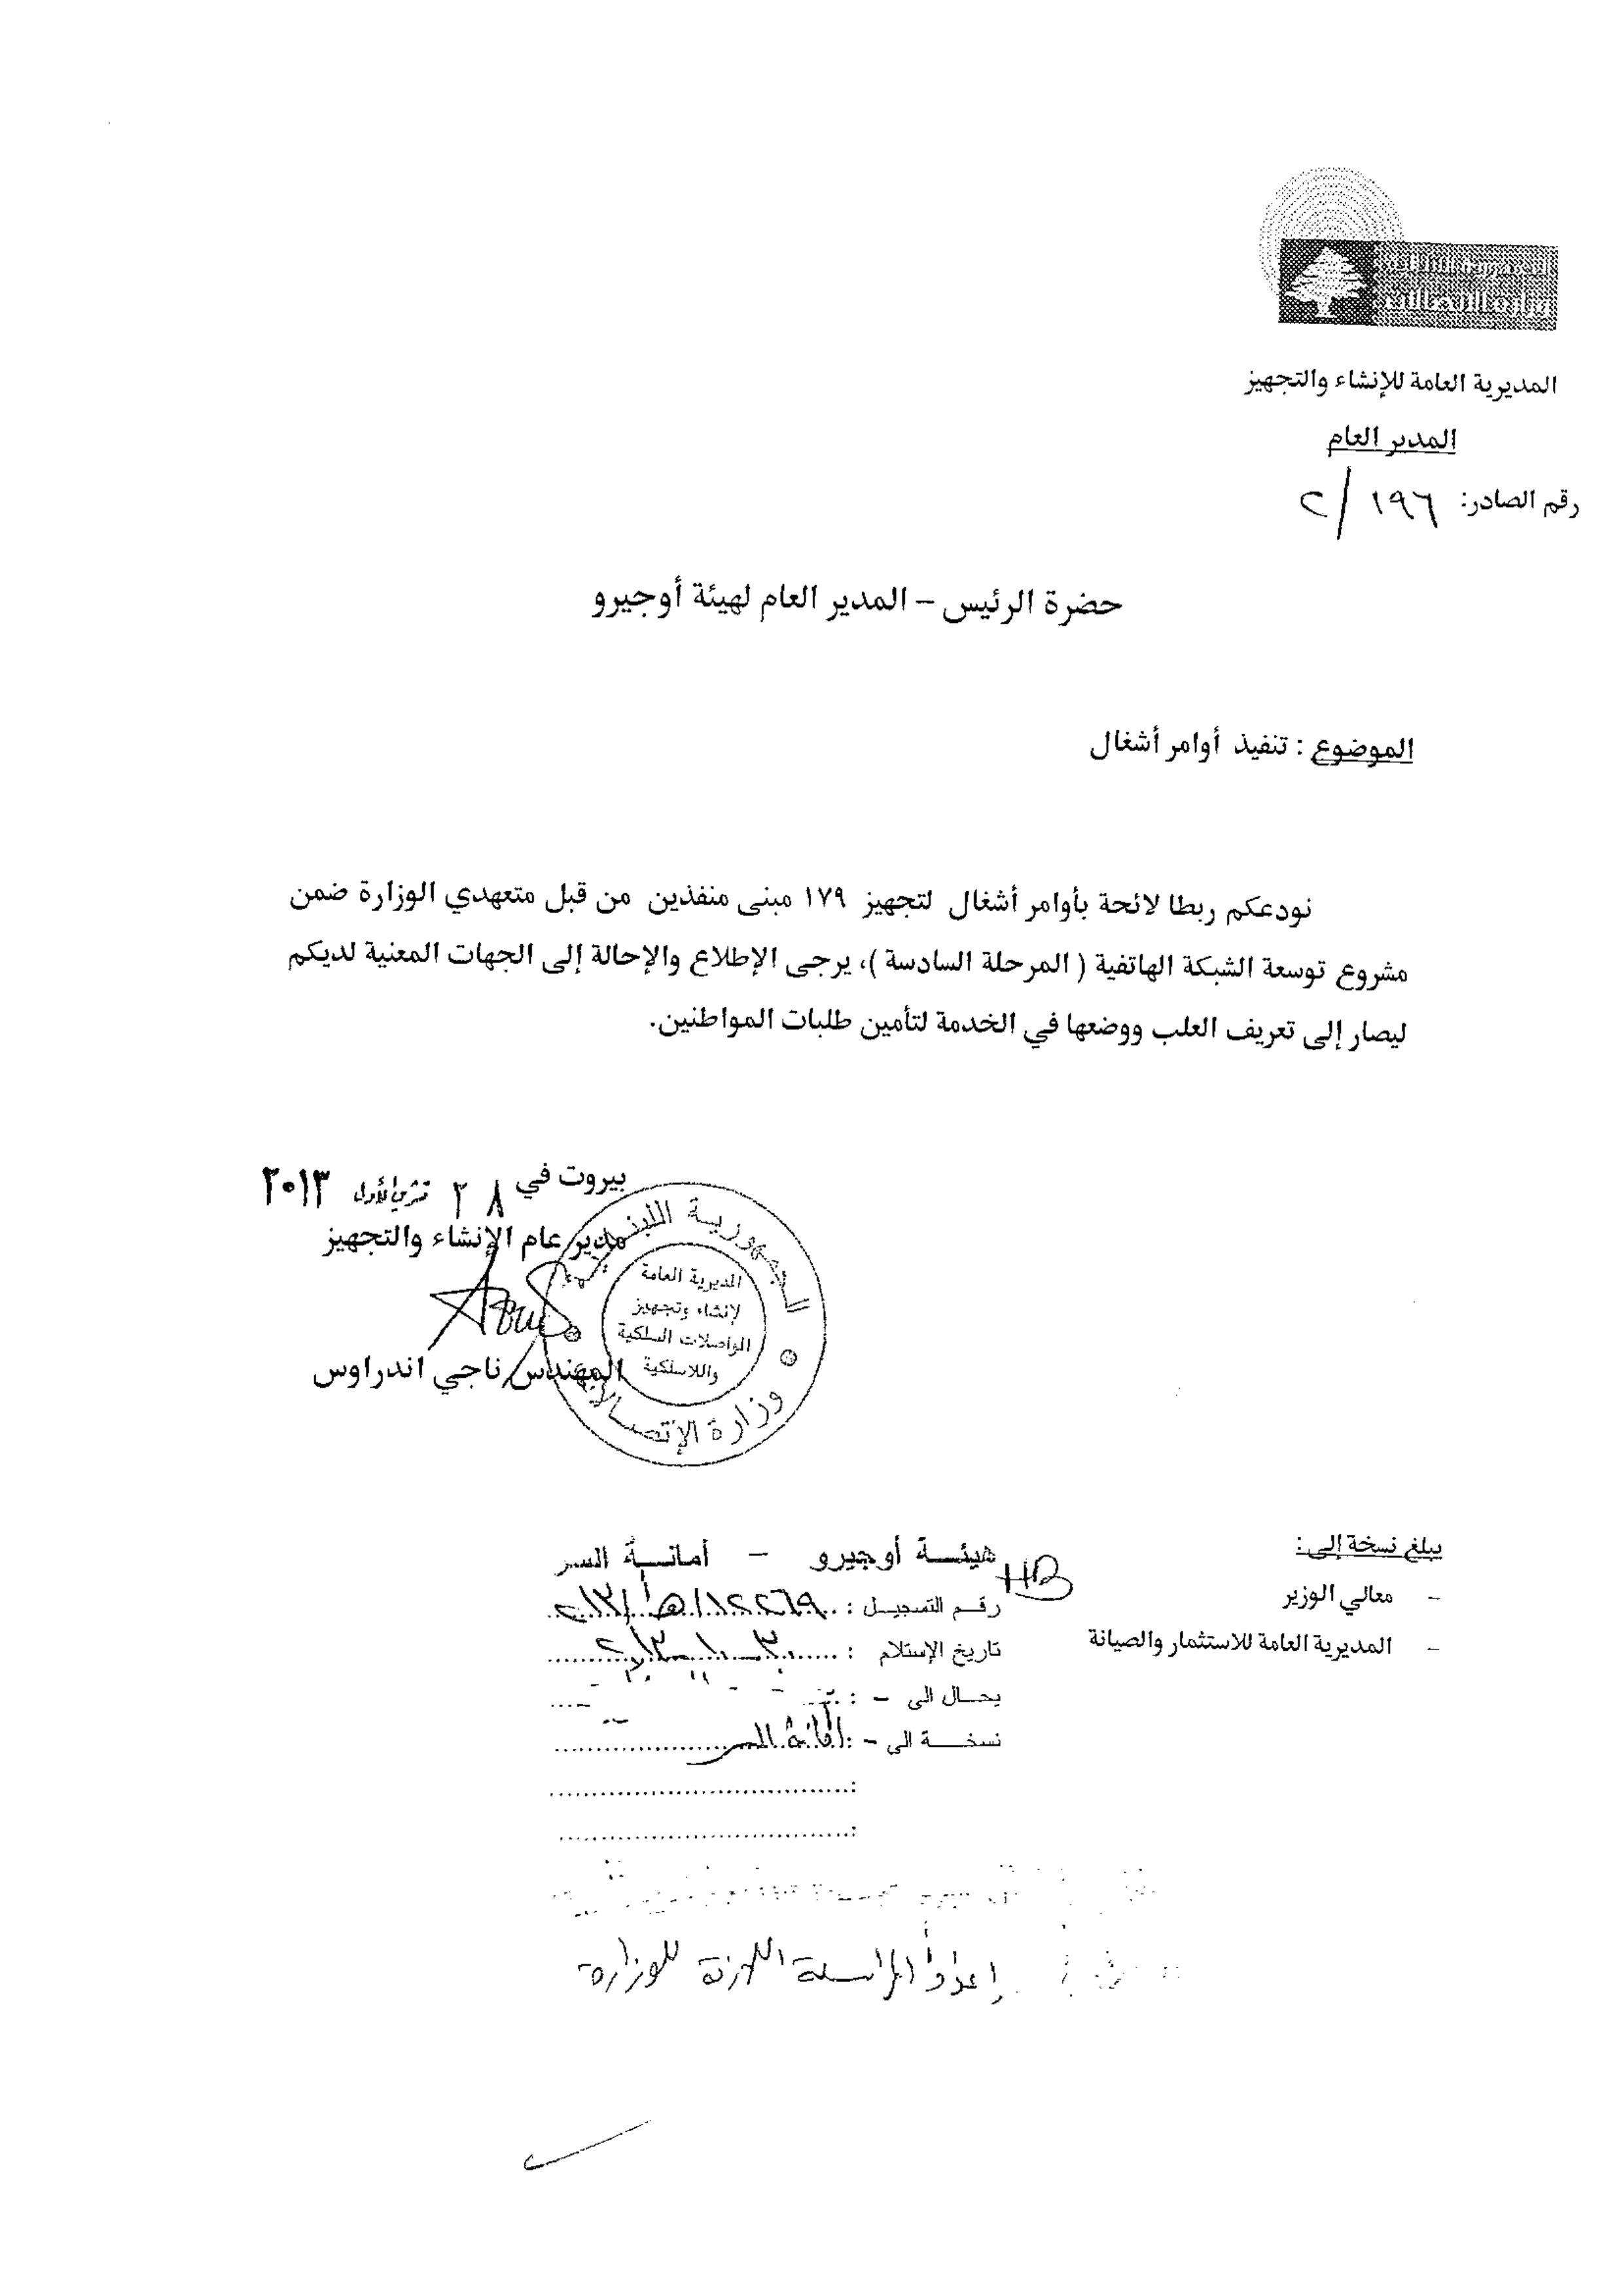 الجمهورية اللبنانية
وزارة الاتصالات
المديرية العامة للإنشاء والتجهيز
المدير العام
رقم الصادر: ١٩٦ / ٢
حضرة الرئيس – المدير العام لهيئة أوجيرو
الموضوع : تنفيذ أوامر أشغال
نودعكم ربطا لائحة بأوامر أشغال لتجهيز ١٧٩ مبنى منفذين من قبل متعهدي الوزارة ضمن
مشروع توسعة الشبكة الهاتفية ( المرحلة السادسة )، يرجى الإطلاع والإحالة إلى الجهات المعنية لديكم
ليصار إلى تعريف العلب ووضعها في الخدمة لتأمين طلبات المواطنين.
بيروت في ٢٨ تشرين الأول ٢٠١٣
مدير عام الإنشاء والتجهيز
المهندس ناجي اندراوس
الجمهورية اللبنانية
المديرية العامة
لإنشاء وتجهيز
المواصلات السلكية
واللاسلكية
وزارة الإتصالات
يبلغ نسخة إلى:
- معالي الوزير
- المديرية العامة للاستثمار والصيانة
HB
هيئة أوجيرو – أمانة السر
رقم التسجيل : ١٢٢٦٩/هـ/٢٠١٣
تاريخ الإستلام : ٣٠-١٠-٢٠١٣
يحال الى – :
نسخة الى – : أمانة السر
إعداد المراسلة اللازمة للوزارة